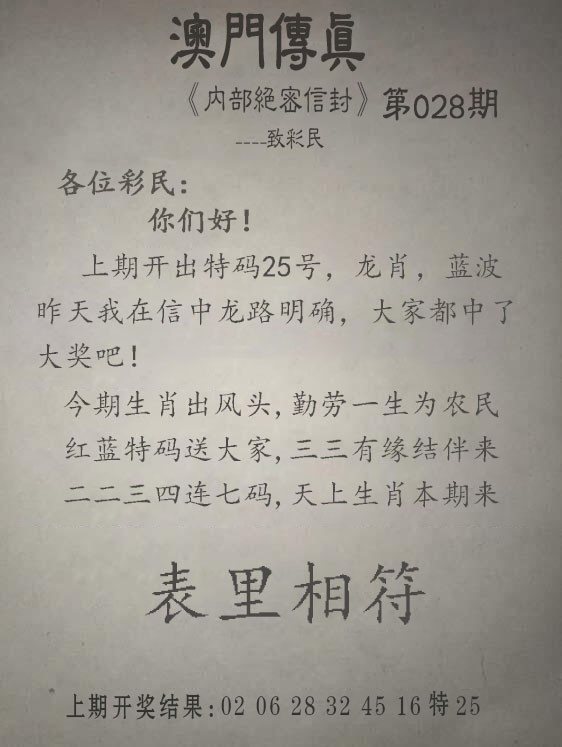 澳門傳眞
《内部絕密信封》第028期
----致彩民
各位彩民：
你们好！
上期开出特码25号，龙肖，蓝波
昨天我在信中龙路明确，大家都中了
大奖吧！
今期生肖出风头,勤劳一生为农民
红蓝特码送大家,三三有缘结伴来
二二三四连七码,天上生肖本期来
表里相符
上期开奖结果:02 06 28 32 45 16 特 25